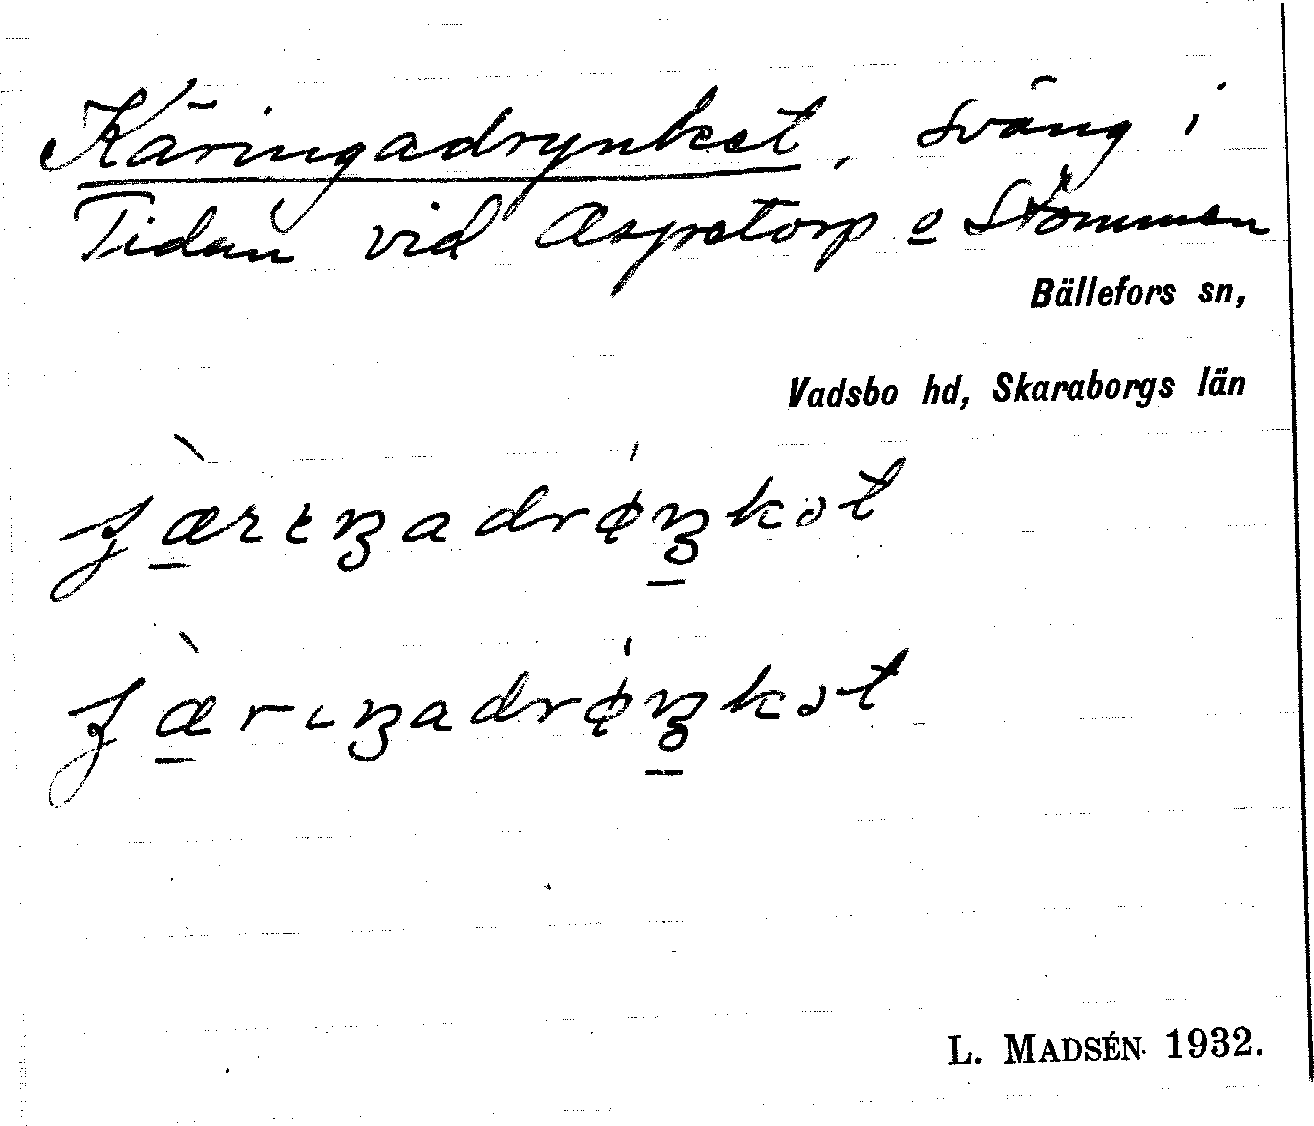 Käringadrynket, sväng i
Tidan vid Aspetorp o Stommen
Bällefors sn,
Vadsbo hd, Skaraborgs län
L. MADSÉN 1932.